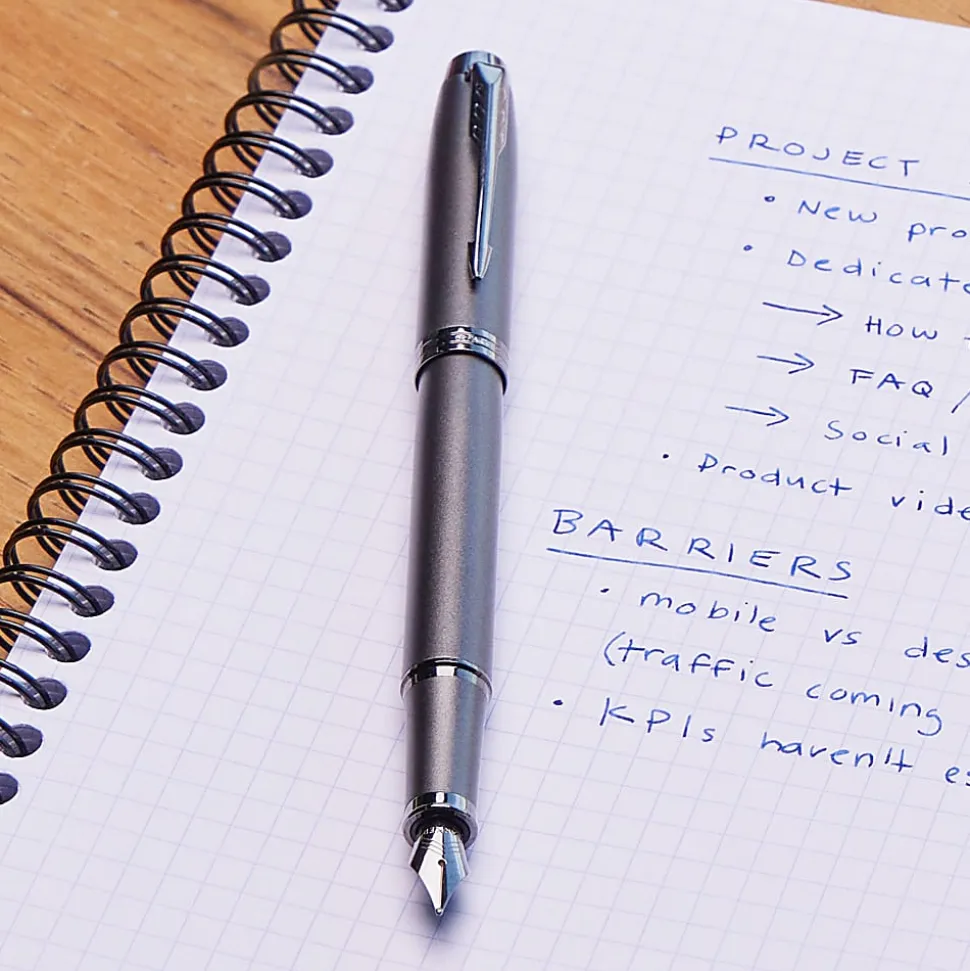 PROJECT
• New pro
• Dedicate
→ How
→ FAQ /
→ Social
• Product vide
BARRIERS
• mobile vs des
(traffic coming
• KPIs haven't es